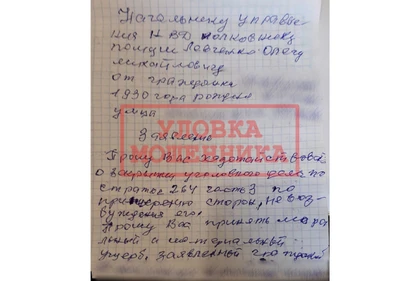 Начальнику управле-
ния МВД полковнику
полиции Левченко Олегу
Михайловичу
от гражданки
1930 года рождения
улица
Заявление
УЛОВКА
МОШЕННИКА
Прошу Вас ходотойствовать
о закрытии уголовного дела по
статье 264 часть 3 по
примирению сторон, не воз-
буждения его.
Прошу Вас принять мораль
льный и материальный
ущерб, заявленный